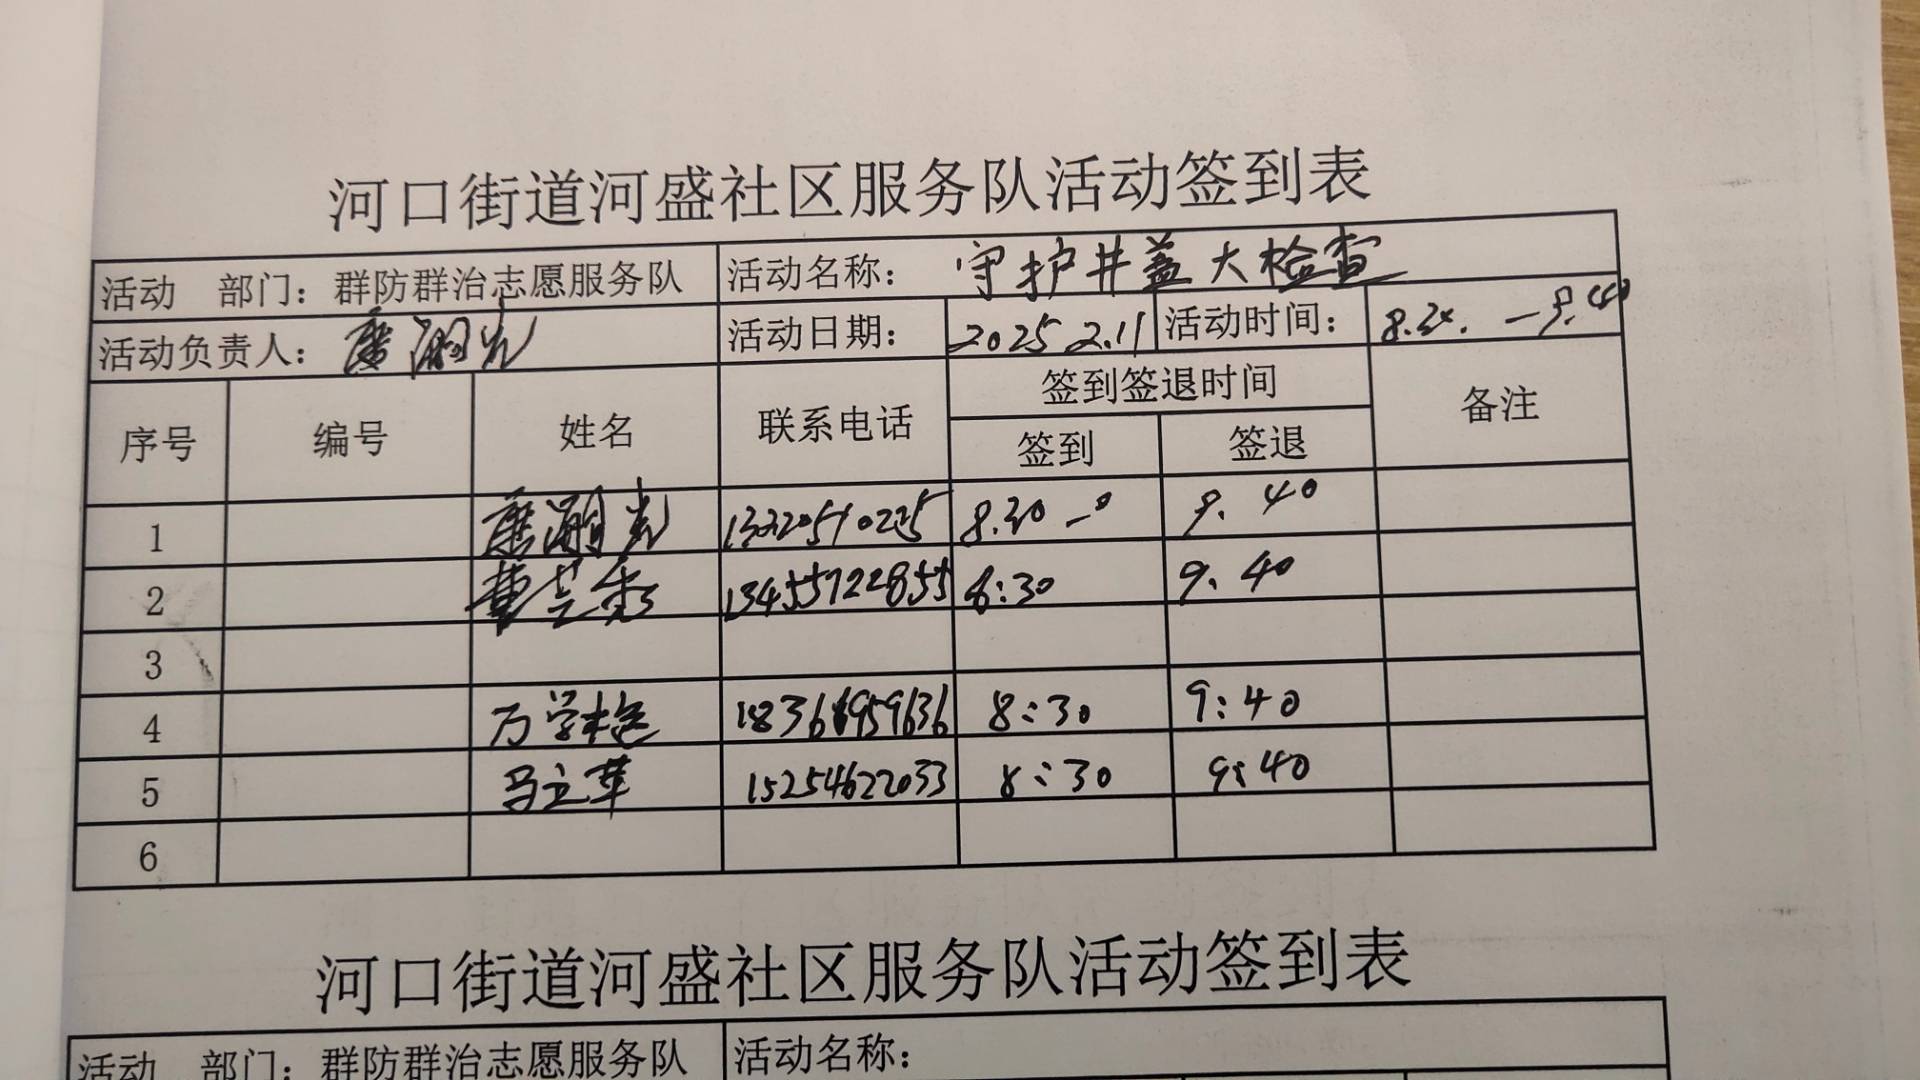 河口街道河盛社区服务队活动签到表
活动 部门：群防群治志愿服务队 活动名称： 守护井盖大检查
活动负责人： 活动日期： 2025 2.11 活动时间： 8.30. —9.40
序号 编号 姓名 联系电话 签到签退时间 备注
签到 签退
1 光 8.30 9. 40
2 13455722855 8:30 9. 40
3
4 万学艳 18366959636 8:30 9:40
5 马立革 15254622033 8:30 9:40
6
河口街道河盛社区服务队活动签到表
活动 部门：群防群治志愿服务队 活动名称：